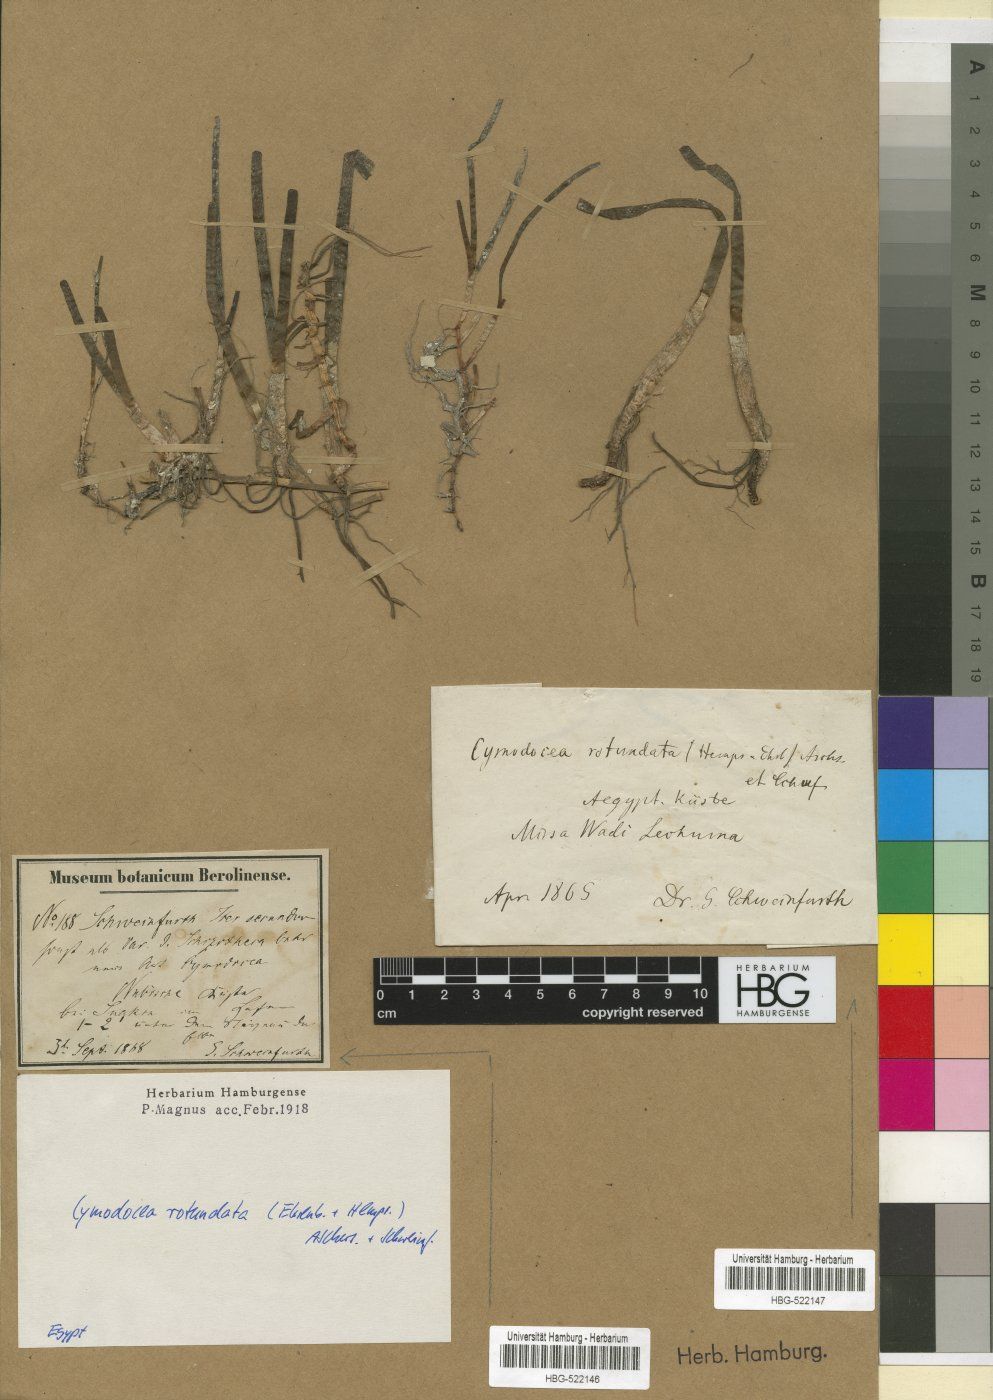 Cymodocea rotundata (Hempr. Ehrb) Aschs.
et Schwf
Aegypt. Küste
Mirsa Wadi Lechuma
Apr. 1865 Dr. G. Schweinfurth
Museum botanicum Berolinense.
No. 188 Schweinfurth Iter secundum
Cymodocea
Nubische Küste
bei Suakin im Hafen
1-2
Sept. 1868 G. Schweinfurth
0 1 2 3 4 5 6 7 8 9 10
cm copyright reserved
HERBARIUM
HBG
HAMBURGENSE
Herbarium Hamburgense
P. Magnus acc. Febr. 1918
Cymodocea rotundata (Ehrenb. + Hempr.)
Aschers. + Schweinf.
Egypt
Universität Hamburg - Herbarium
HBG-522147
Universität Hamburg - Herbarium
HBG-522146
Herb. Hamburg.
A
1
2
3
4
5
6
M
8
9
10
11
12
13
14
15
B
17
18
19